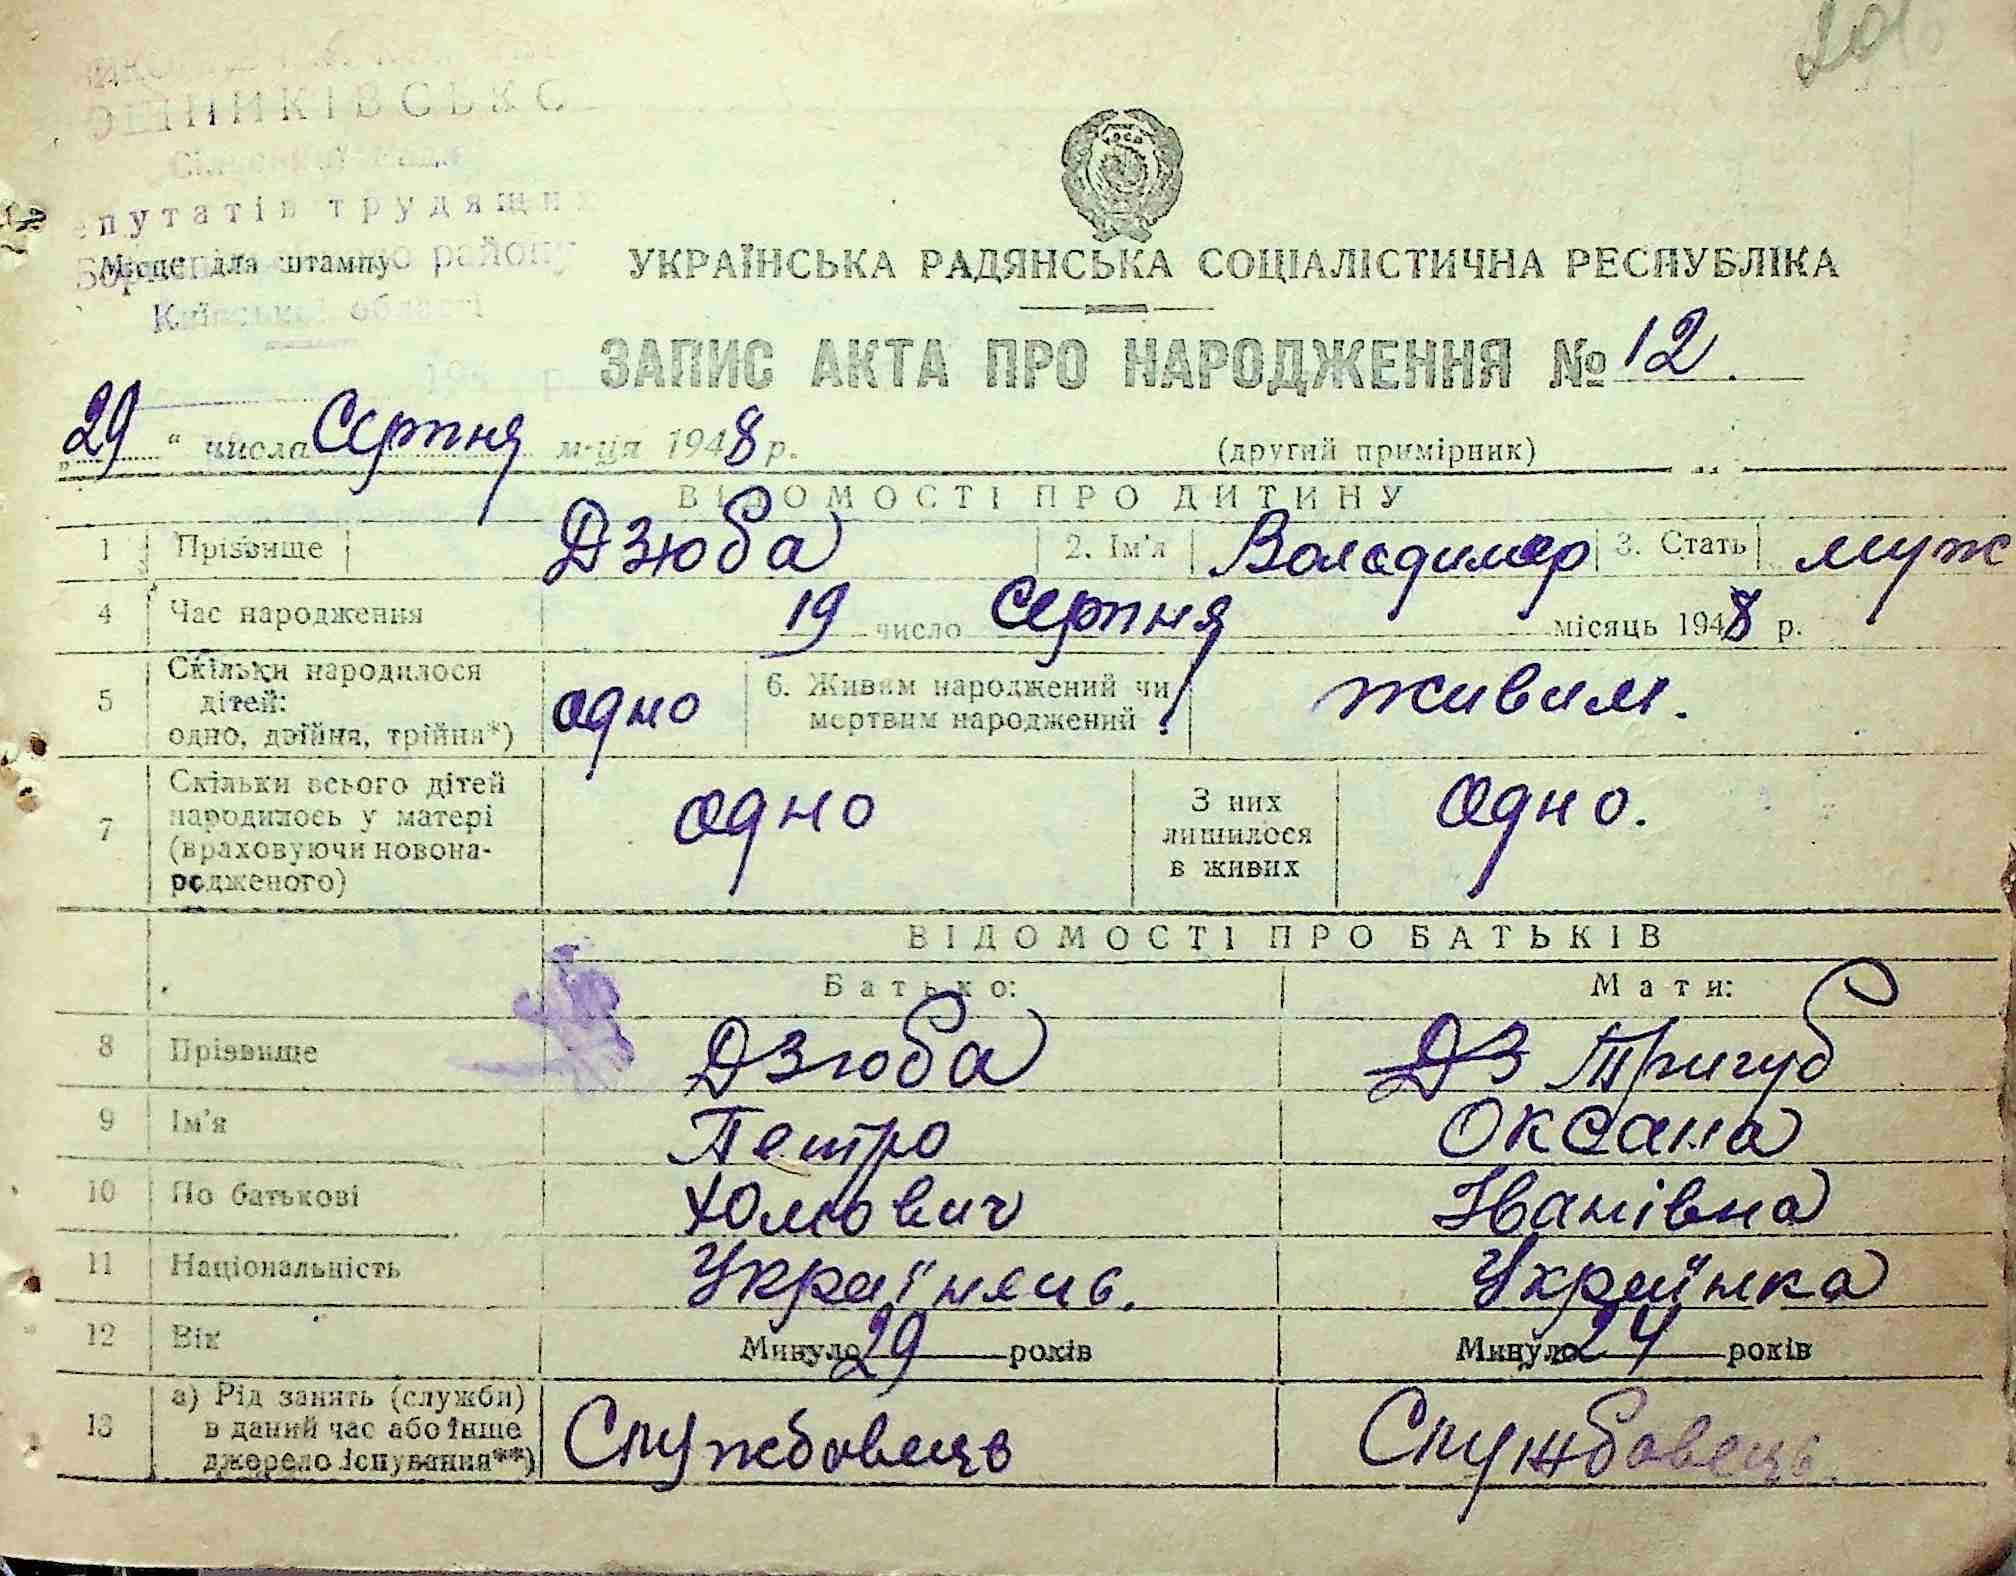 ОШНИКІВСЬКО
епутатів трудящих
району
Київської області
Місце для штампу
УКРАЇНСЬКА РАДЯНСЬКА СОЦІАЛІСТИЧНА РЕСПУБЛІКА
ЗАПИС АКТА ПРО НАРОДЖЕННЯ № 12.
„29“ числа Серпня м-ця 1948 р.
(другий примірник)
ВІДОМОСТІ ПРО ДИТИНУ
1 Прізвище Дзюба 2. Ім'я Володимер 3. Стать муж
4 Час народження 19 число Серпня місяць 1948 р.
5 Скільки народилося
дітей:
одно, двійня, трійня*) одно 6. Живим народжений чи
мертвим народжений живим.
7 Скільки всього дітей
народилось у матері
(враховуючи новона-
родженого) одно З них
лишилося
в живих одно.
ВІДОМОСТІ ПРО БАТЬКІВ
Батько: Мати:
8 Прізвище Дзюба Дз Тригуб
9 Ім'я Петро Оксана
10 По батькові Юхмович Іванівна
11 Національність Українець. Українка
12 Вік Минуло 29 років Минуло 24 років
13 а) Рід занять (служби)
в даний час або інше
джерело існування**) Службовець Службовець.